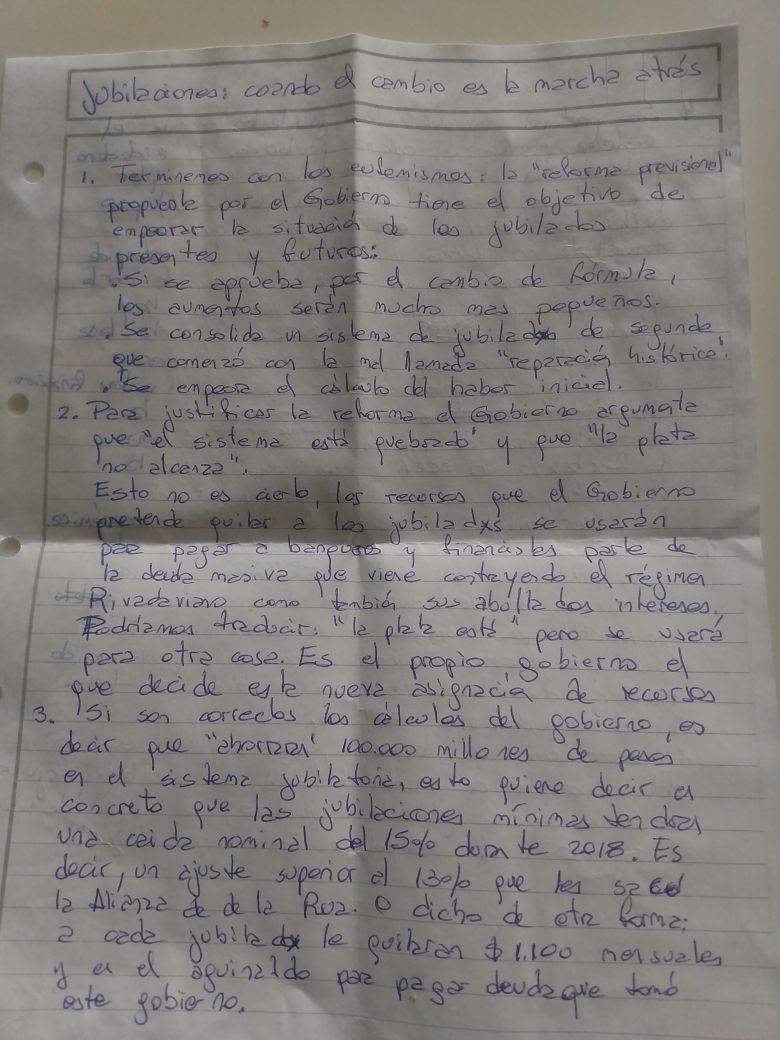 Jubilaciones: cuando el cambio es la marcha atrás
1. Terminemos con los eufemismos: la "reforma previsional"
propuesta por el Gobierno tiene el objetivo de
empeorar la situación de los jubilados
presentes y futuros:
. Si se aprueba, por el cambio de fórmula,
los aumentos serán mucho mas pequeños.
. Se consolida un sistema de jubiladxs de segunda
que comenzó con la mal llamada "reparación histórica".
. Se empeora el cálculo del haber inicial.
2. Para justificar la reforma el Gobierno argumenta
que "el sistema está quebrado" y que "la plata
no alcanza".
Esto no es cierto, los recursos que el Gobierno
pretende quitar a los jubiladxs se usarán
para pagar a banqueros y financistas parte de
la deuda masiva que viene contrayendo el régimen
Rivadaviano como también sus abultados intereses.
Podríamos traducir: "la plata está" pero se usará
para otra cosa. Es el propio gobierno el
que decide esta nueva asignación de recursos
3. Si son correctos los cálculos del gobierno, es
decir que "ahorran" 100.000 millones de pesos
en el sistema jubilatorio, esto quiere decir en
concreto que las jubilaciones mínimas tendrán
una caída nominal del 15% durante 2018. Es
decir, un ajuste superior al 13% que les sacó
la Alianza de de la Rua. O dicho de otra forma:
a cada jubiladx le quitaran $1.100 mensuales
y en el aguinaldo para pagar deuda que tomó
este gobierno.